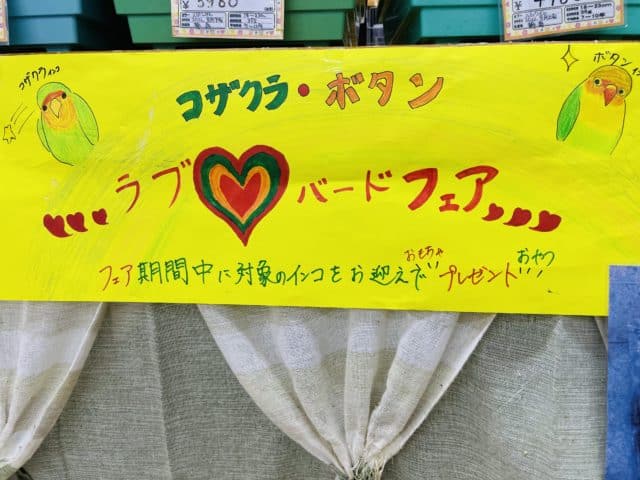 ¥ 5980
コザクラインコ
コザクラ・ボタン
ボタンインコ
ラブ バードフェア
おもちゃ おやつ
フェア期間中に対象のインコをお迎えでプレゼント